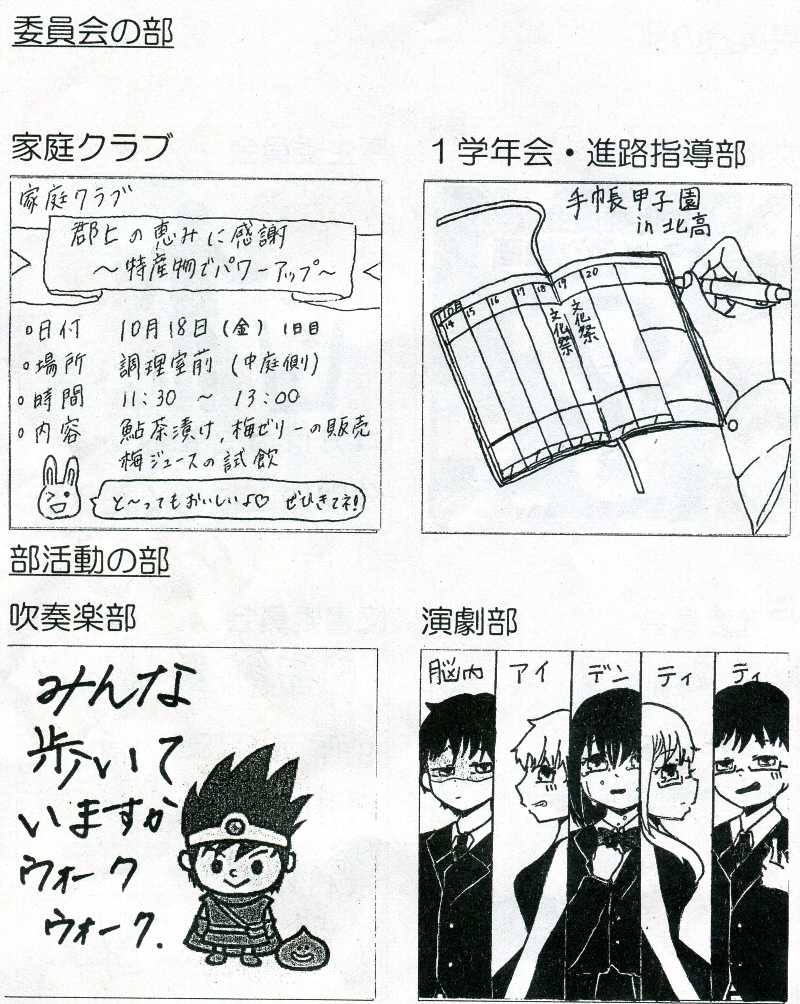 委員会の部
家庭クラブ
家庭クラブ
郡上の恵みに感謝
～特産物でパワーアップ～
○日付 10月18日(金) 1日目
○場所 調理室前 (中庭側)
○時間 11:30 ～ 13:00
○内容 鮎茶漬け,梅ゼリーの販売
梅ジュースの試飲
と～ってもおいしいよ♡ ぜひきてネ!
1学年会・進路指導部
手帳甲子園
in 北高
10月
14 15 16 17 18 19 20
文化祭
文化祭
部活動の部
吹奏楽部
みんな
歩いて
いますか
ウォーク
ウォーク.
演劇部
脳内 アイ デン ティ ティ